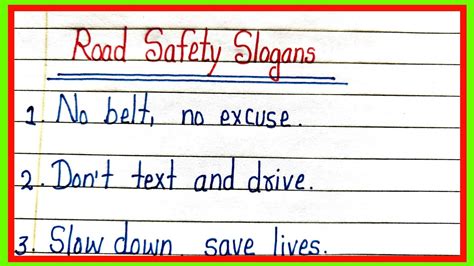 Road Safety Slogans
1. No belt, no excuse.
2. Don't text and drive.
3. Slow down save lives.